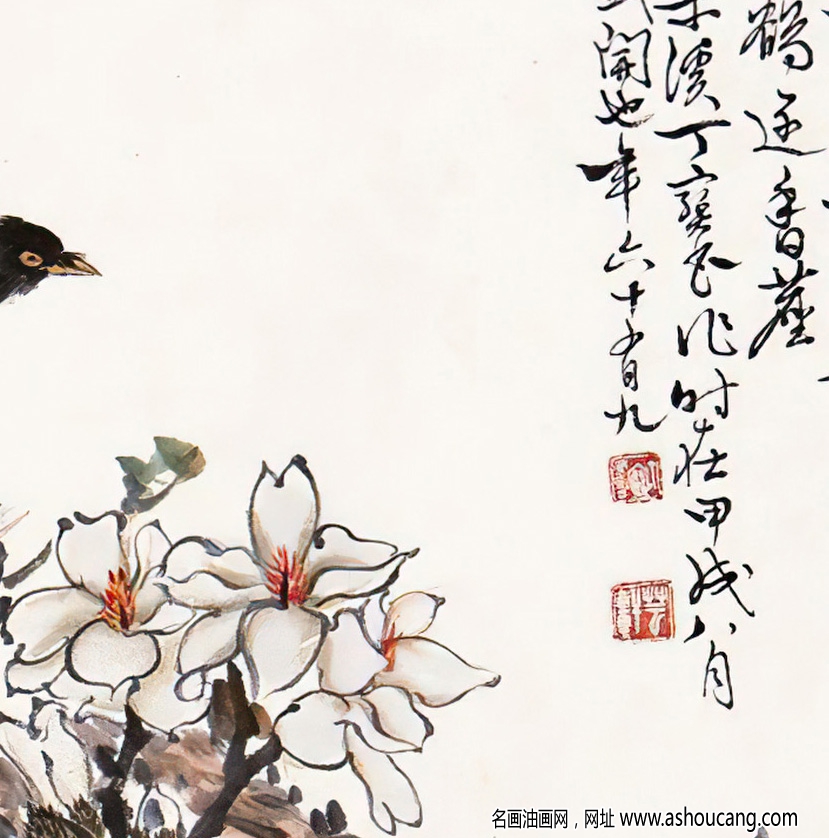 香塵
溪丁寶書作时在甲戌八月
開也年六十有九
名画油画网，网址 www.ashoucang.com